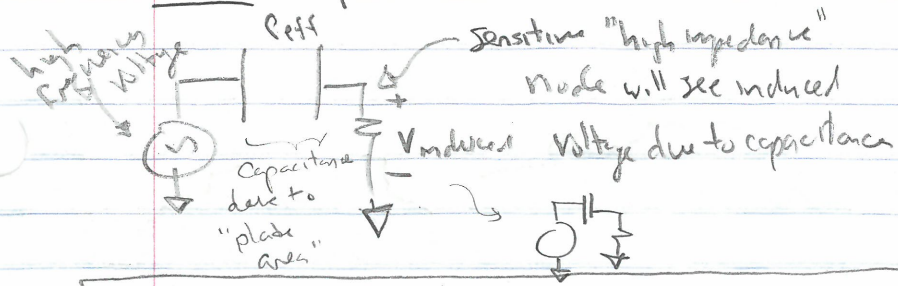 Ceff
high
frequency
voltage
Sensitive "high impedance"
node will see induced
voltage due to capacitance
+
Vinduced
-
Capacitance
due to
"plate
area"